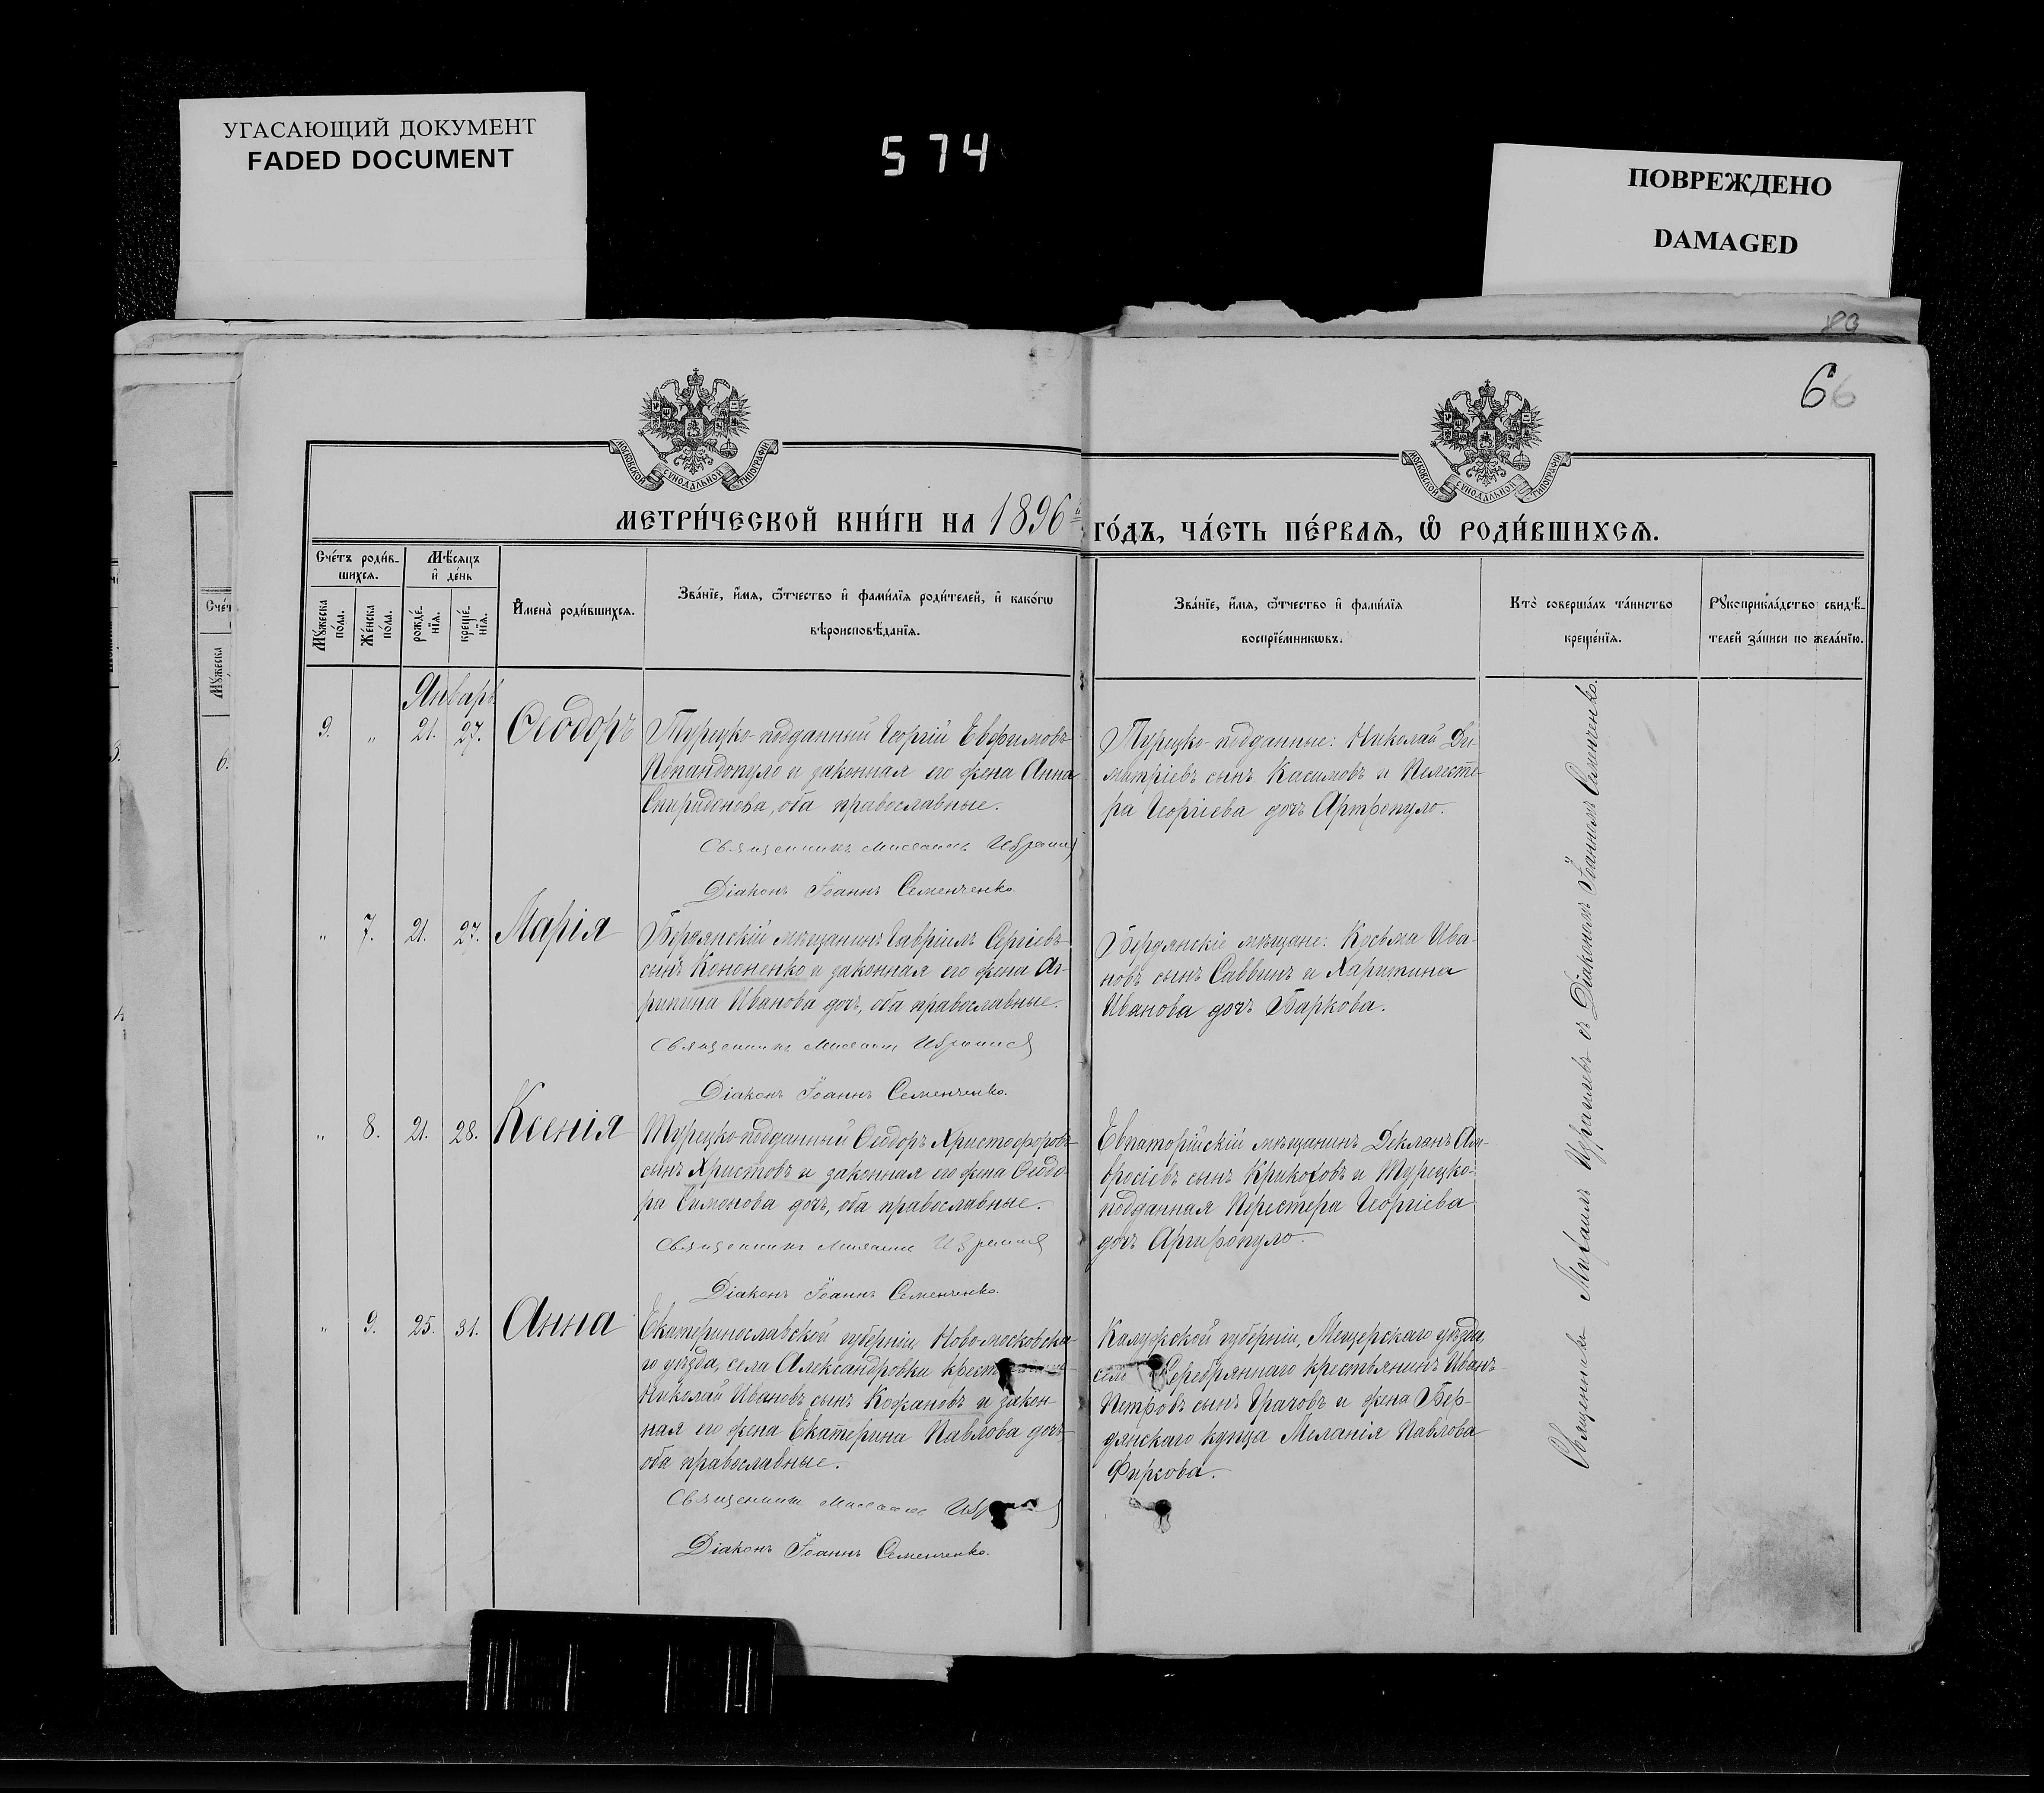 УГАСАЮЩИЙ ДОКУМЕНТ
FADED DOCUMENT
574
ПОВРЕЖДЕНО
DAMAGED
83
66
МОСКОВСКОЙ СѴНОДАЛЬНОЙ ТИПОГРАФІИ
МОСКОВСКОЙ СѴНОДАЛЬНОЙ ТИПОГРАФІИ
МЕТРИ́ЧЕСКОЙ КНИ́ГИ НА 1896 й ГО́ДЪ, ЧА́СТЬ ПЕ́РВАЯ, Ѽ РОДИ́ВШИХСЯ.
Сче́тъ роди́вшихся.
Мꙋ́жеска по́ла.
Же́нска по́ла.
Мѣ́сяцъ и҆ де́нь
рожде́нїя.
креще́нїя.
И҆мена̀ роди́вшихся.
Зва́нїе, и҆́мя, ѻ҆́тчество и҆ фами́лїя роди́телей, и҆ како́гѡ
вѣроисповѣ́данїя.
Зва́нїе, и҆́мя, ѻ҆́тчество и҆ фами́лїя
воспрїе́мникѡвъ.
Кто̀ соверша́лъ та́инство
креще́нїя.
Рꙋкоприкла́дство свидѣ́-
телей за́писи по жела́нїю.
Январь
9. " 21. 27. Ѳеодоръ
Турецко-подданный Георгій Евфимовъ
Попандопуло и законная его жена Анна
Спиридонова, оба православные.
Священникъ Михаилъ Израилев
Діаконъ Іоаннъ Семенченко.
Турецко-подданные: Николай Ди-
митріевъ сынъ Касимовъ и Пелесте-
ра Георгіева дочь
" 7. 21. 27. Марія
Бердянскій мѣщанинъ Гавріилъ Сергіевъ
сынъ Кононенко и законная его жена Аг-
рипина Иванова дочь, оба православные.
Священникъ Михаилъ Израилев
Діаконъ Іоаннъ Семенченко.
Бердянскіе мѣщане: Кузьма Ива-
новъ сынъ Саввинъ и Харитина
Иванова дочь Баркова.
" 8. 21. 28. Ксенія
Турецко-подданный Ѳеодоръ Христофоровъ
сынъ Христовъ и законная его жена Ѳеодо-
ра Симонова дочь, оба православные.
Священникъ Михаилъ Израилев
Діаконъ Іоаннъ Семенченко.
Евпаторійскій мѣщанинъ Ам-
вросіевъ сынъ Крикоховъ и Турецко-
подданная Перестера Георгіева
дочь Аргифопуло.
" 9. 25. 31. Анна
Екатеринославской губерніи, Новомосковска-
го уѣзда, села Александровки
Николай Ивановъ сынъ Кожановъ и закон-
ная его жена Екатерина Павлова дочь
оба православные.
Священникъ Михаилъ
Діаконъ Іоаннъ Семенченко.
Калужской губерніи, Мещерскаго уѣзда,
села Серебряннаго крестьянинъ Иванъ
Петровъ сынъ Грачовъ и жена Бер-
дянскаго купца Меланія Павлова
Фирсова.
Священникъ Михаилъ Израилевъ съ Діакономъ Іоанномъ Семенченко.
Сче́т
Мꙋ́жеска
6.